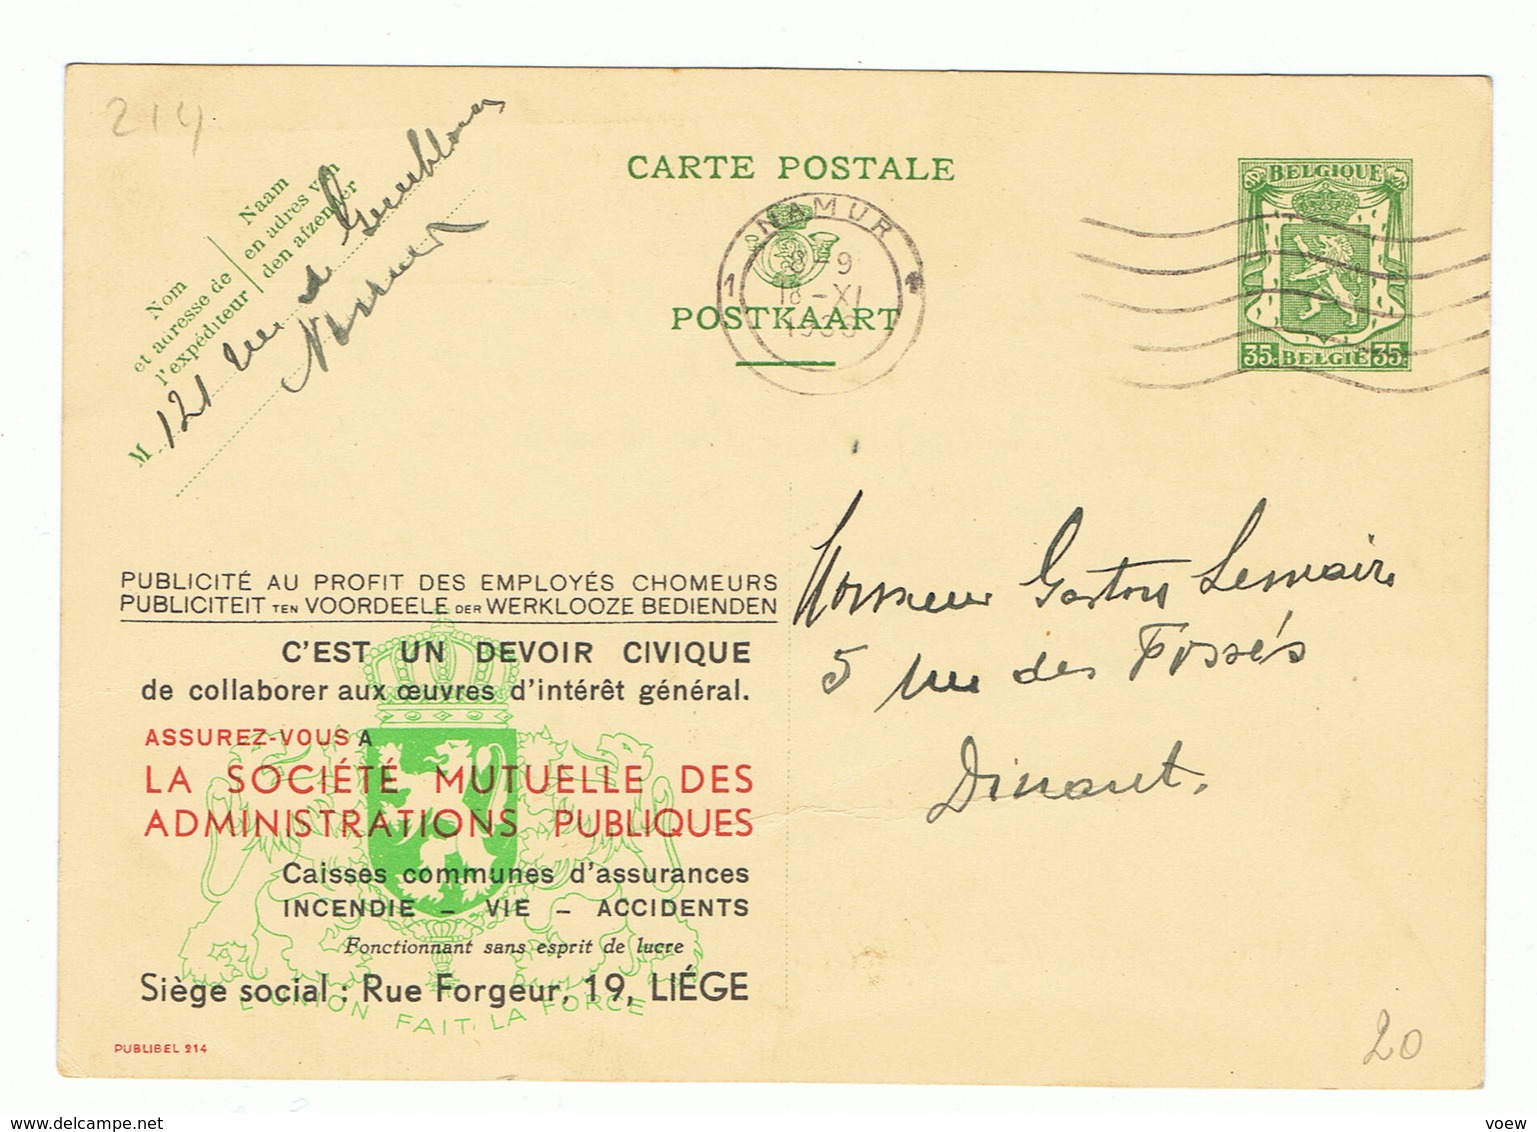 214
CARTE POSTALE
POSTKAART
Nom
et adresse de
l'expéditeur
Naam
en adres van
den afzender
M 121 rue de Gembloux
Namur
NAMUR
1
8-9
18-XI
BELGIQUE
35c BELGIË 35c
Monsieur Gaston Lemaire
5 rue des Fossés
Dinant.
PUBLICITÉ AU PROFIT DES EMPLOYÉS CHOMEURS
PUBLICITEIT TEN VOORDEELE DER WERKLOOZE BEDIENDEN
C'EST UN DEVOIR CIVIQUE
de collaborer aux œuvres d'intérêt général.
ASSUREZ-VOUS A
LA SOCIÉTÉ MUTUELLE DES
ADMINISTRATIONS PUBLIQUES
Caisses communes d'assurances
INCENDIE – VIE – ACCIDENTS
Fonctionnant sans esprit de lucre
Siège social : Rue Forgeur, 19, LIÉGE
L'UNION FAIT LA FORCE
PUBLIBEL 214
20
www.delcampe.net
voew